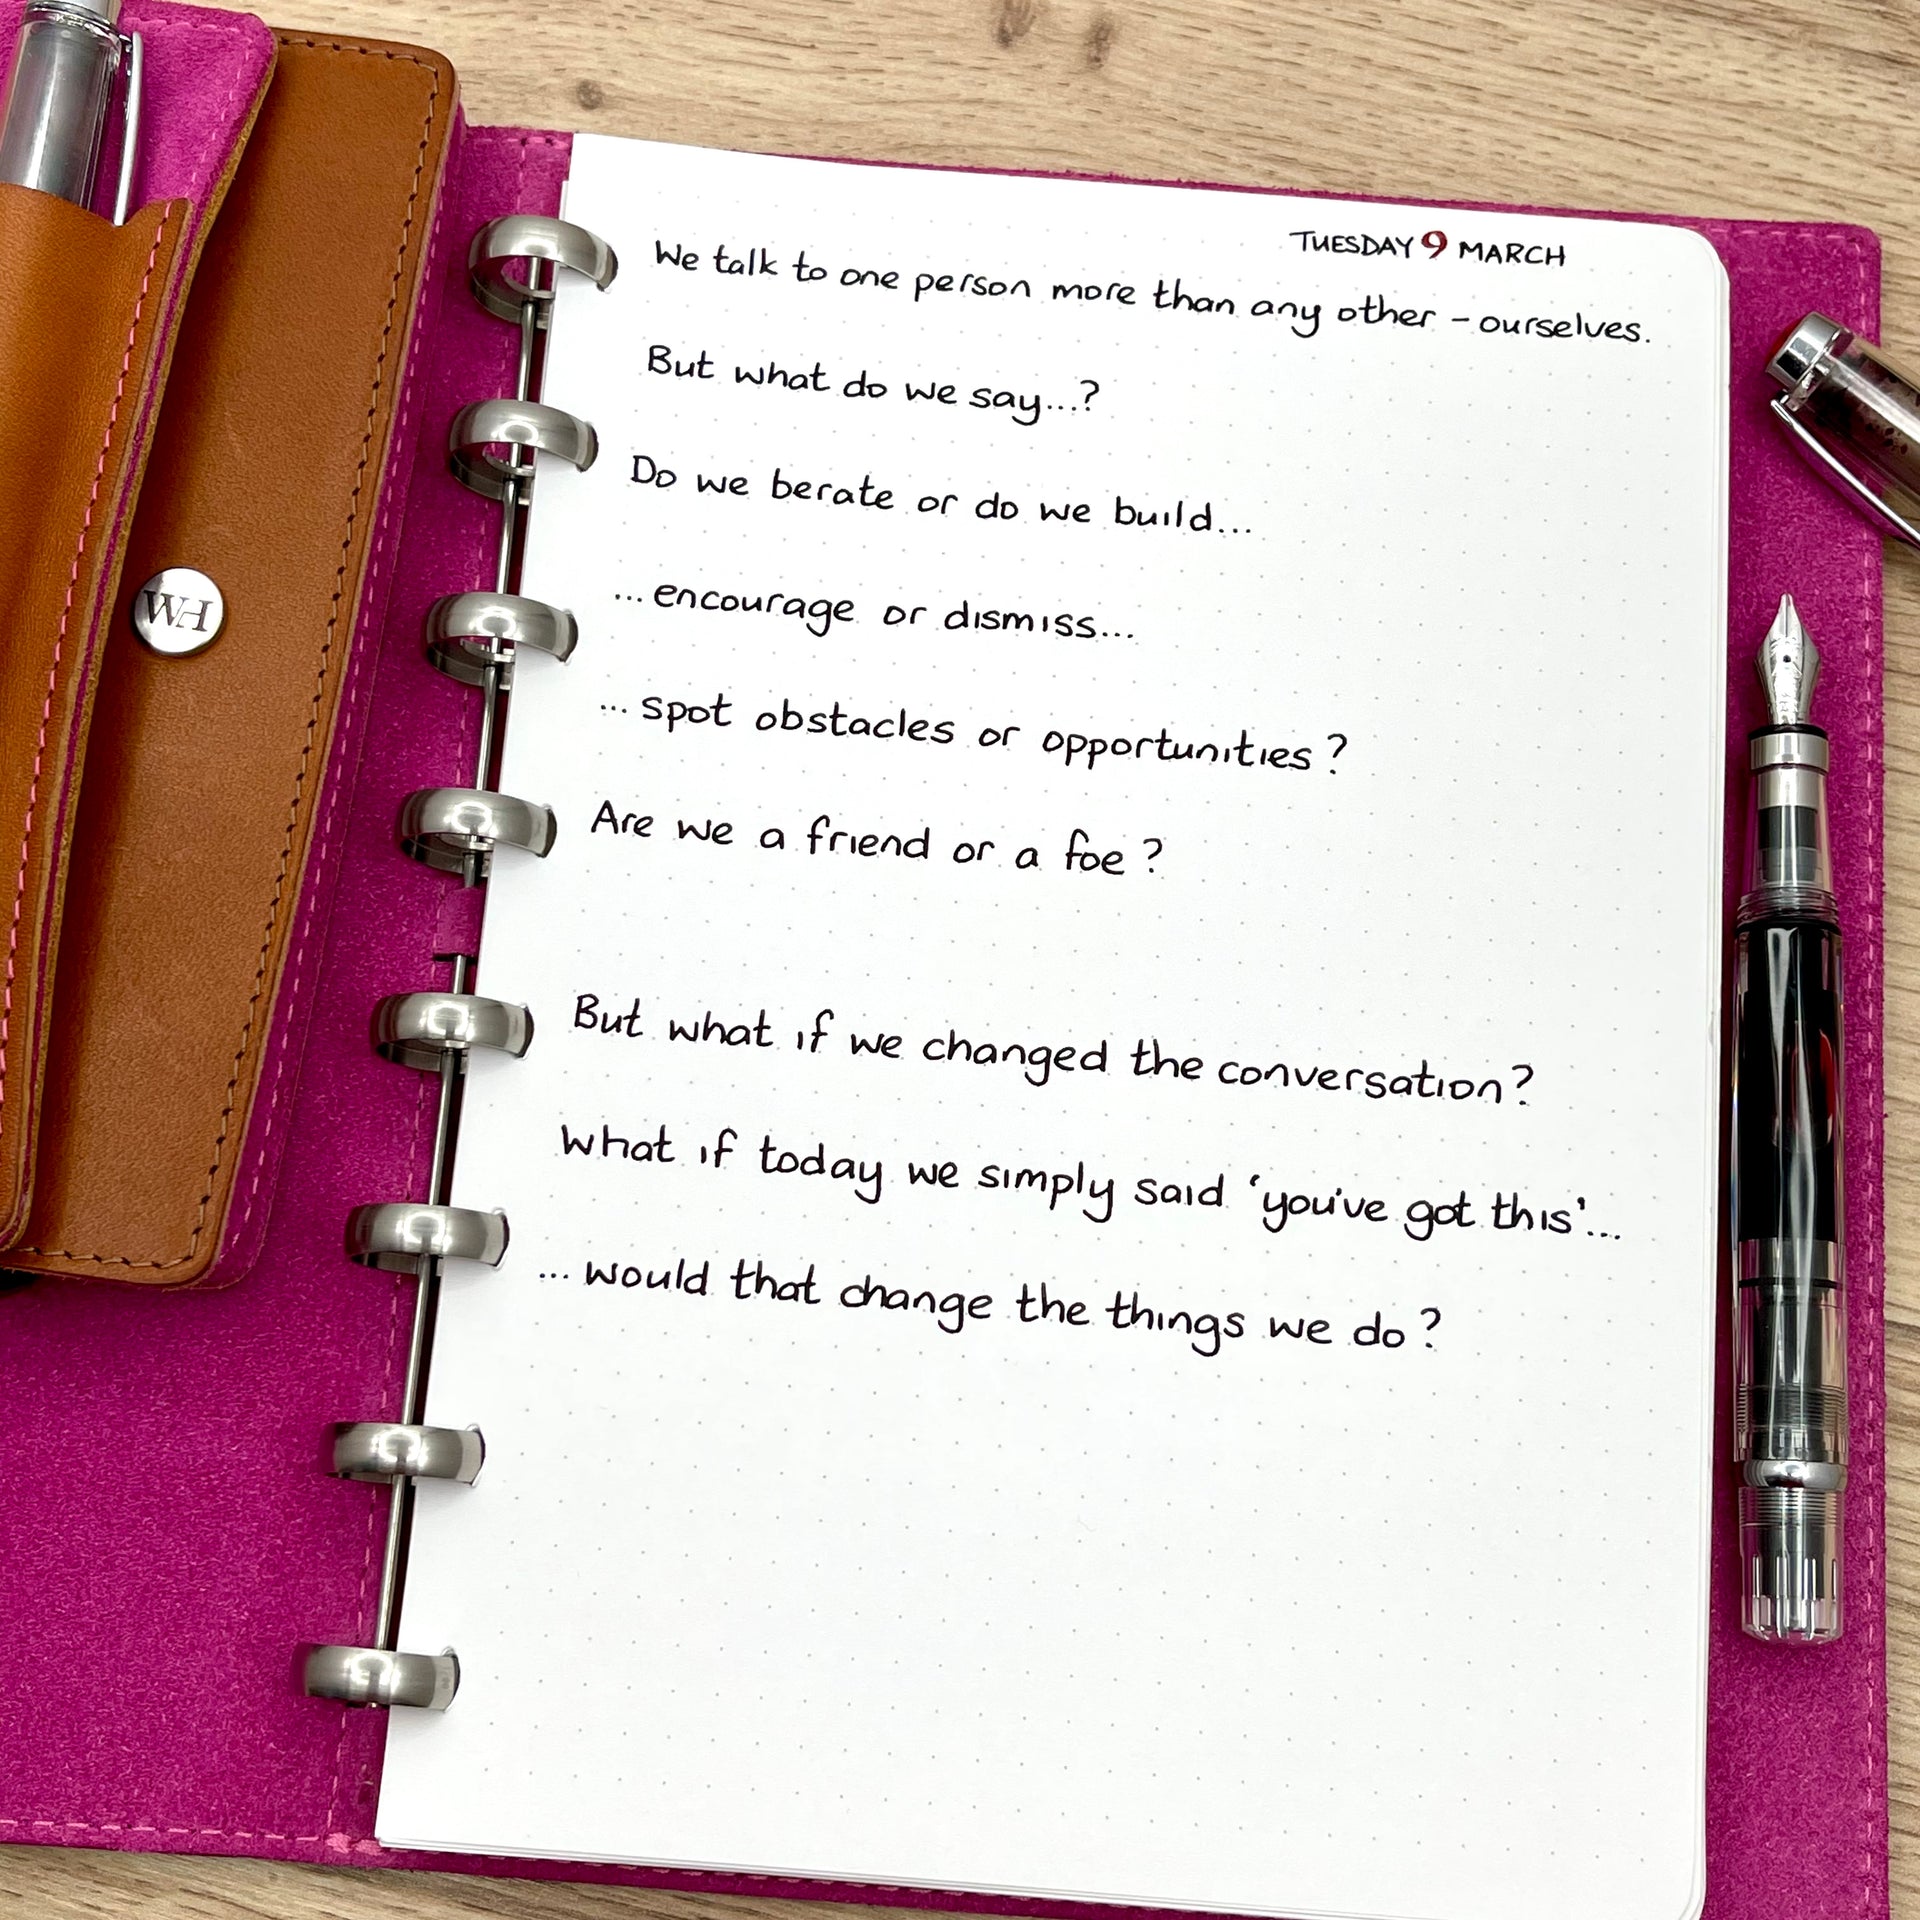 TUESDAY 9 MARCH
We talk to one person more than any other - ourselves.
But what do we say...?
Do we berate or do we build...
... encourage or dismiss...
... spot obstacles or opportunities?
Are we a friend or a foe?
But what if we changed the conversation?
What if today we simply said 'you've got this'...
... would that change the things we do?
WH